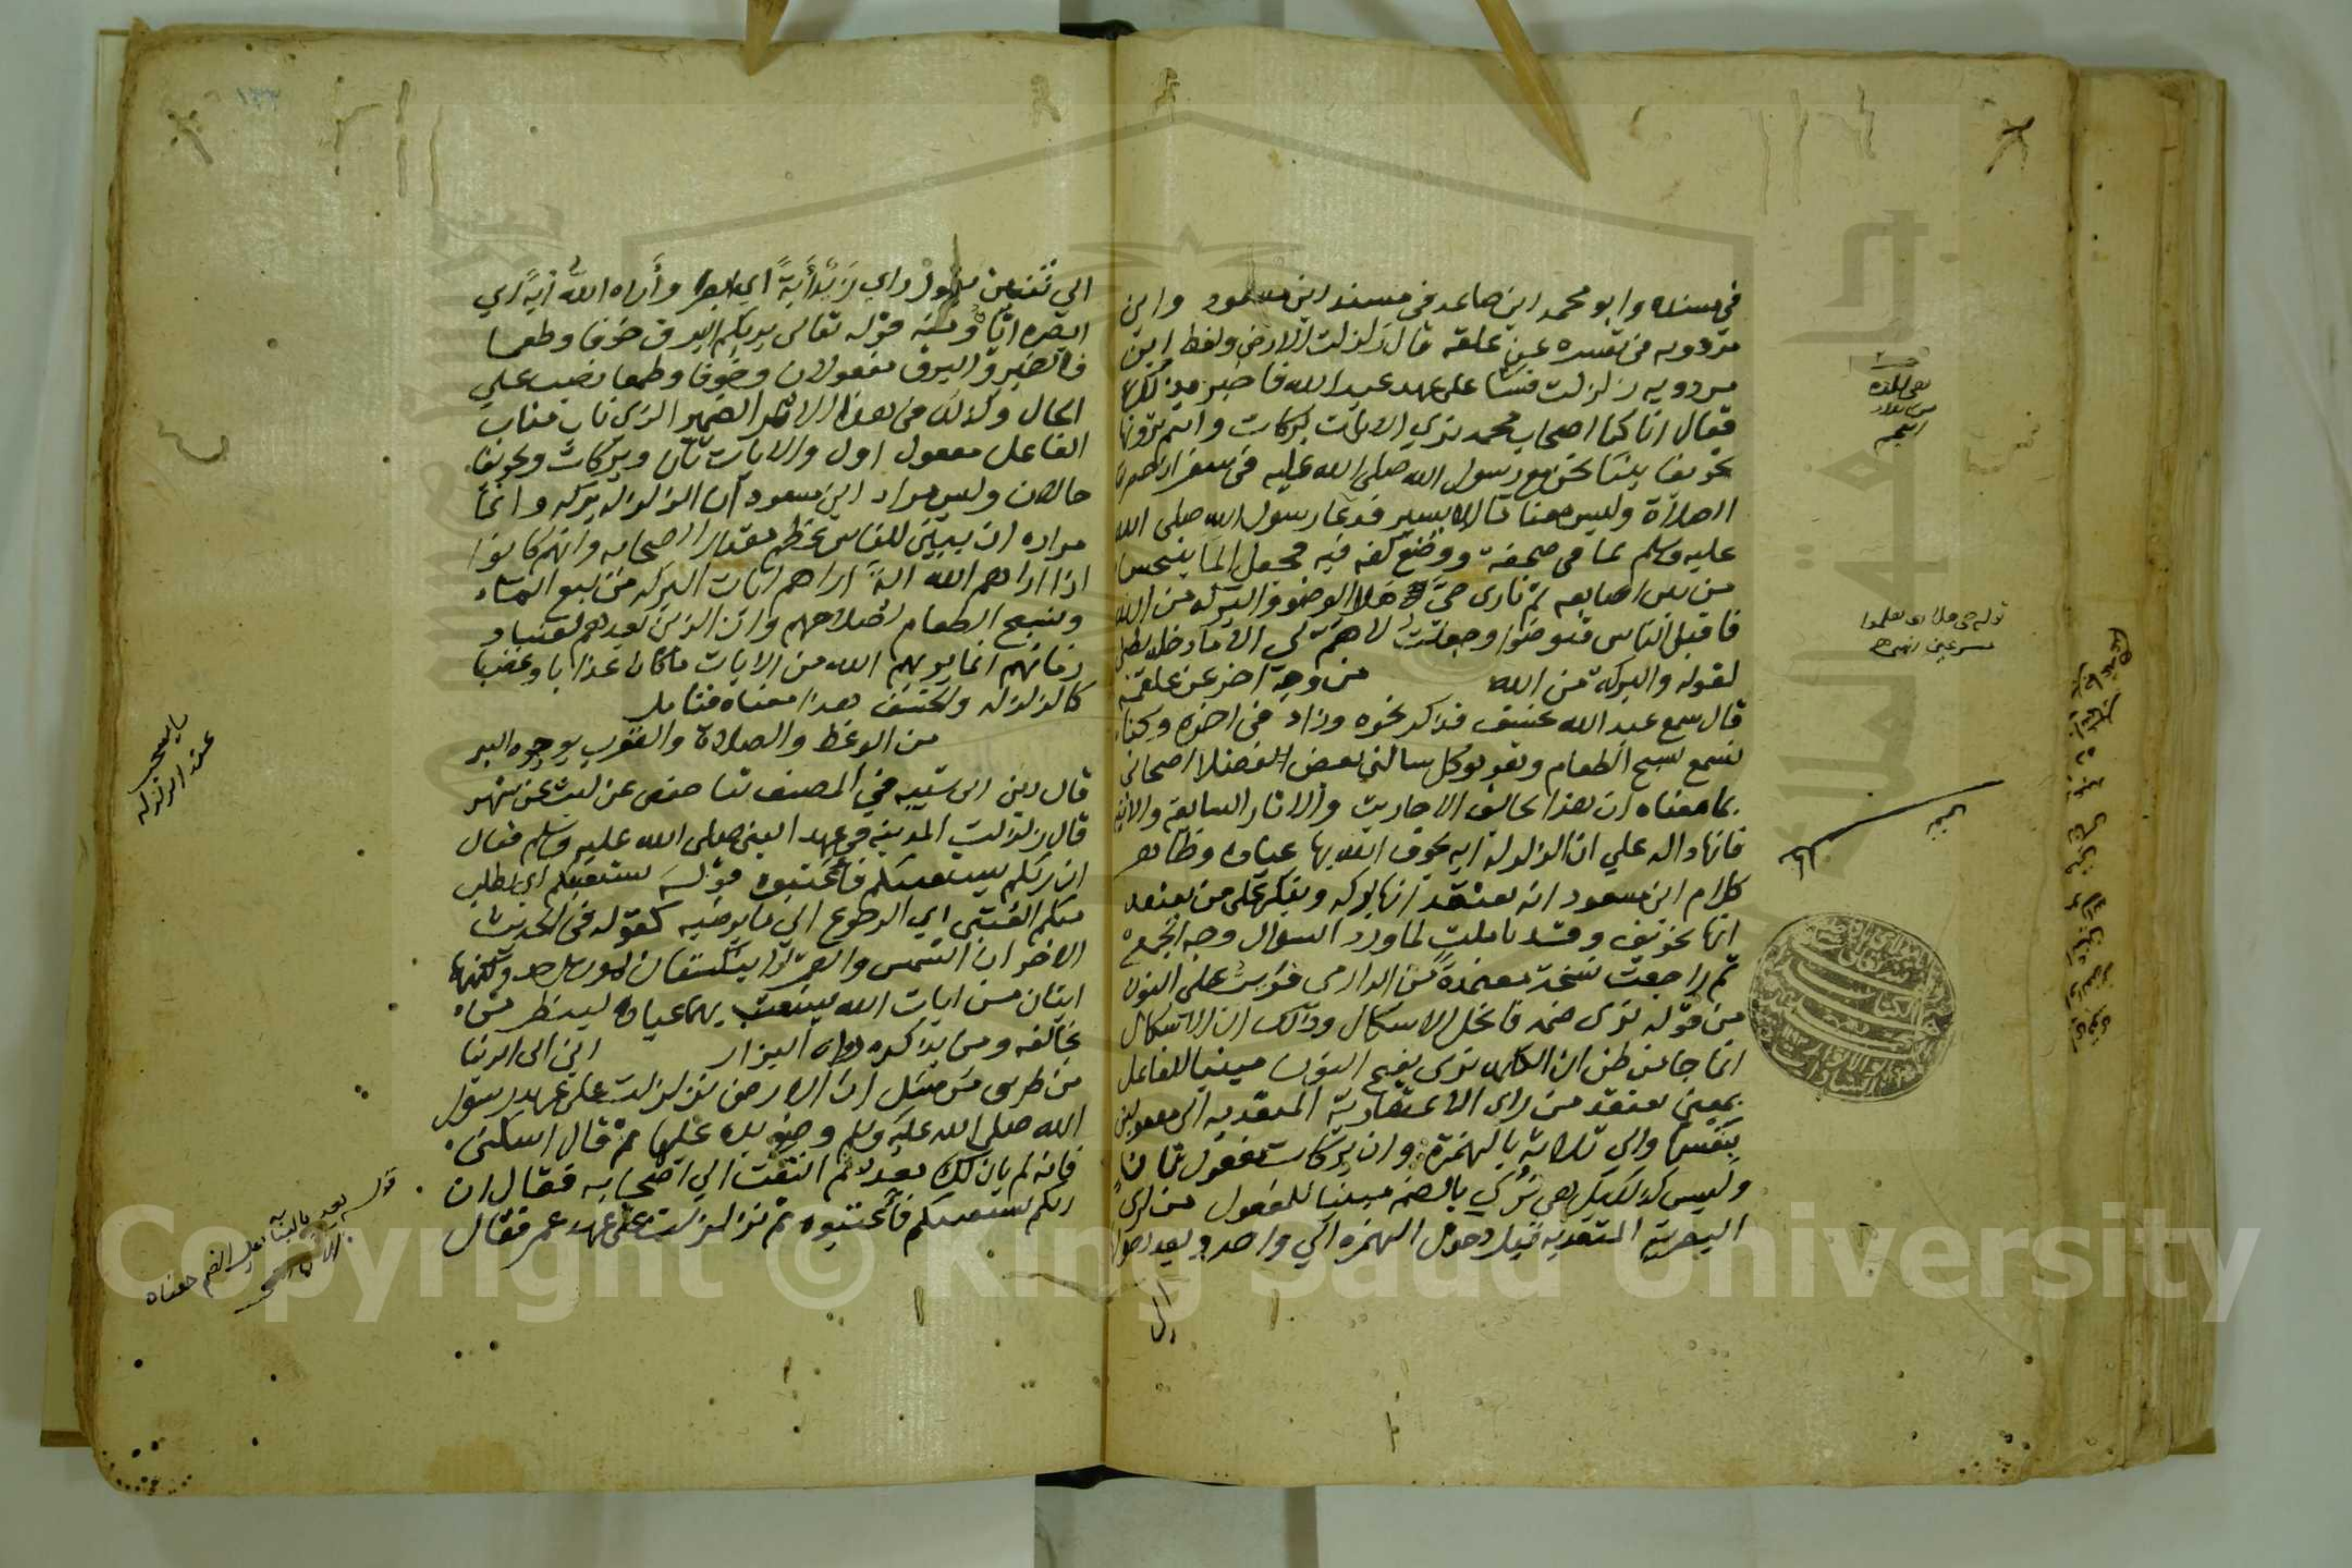 في مسنده وابو محمد ابن صاعد في مسند ابن مسعود وابن
مردويه في تفسيره عن علقمة قال زلزلت الارض ولفظ ابن
مردويه زلزلت على عهد عبد الله فاخبر بذلك
فقال انا كنا اصحاب محمد نرى الايات بركات وانتم ترونها
تخويفا بينا نحن مع رسول الله صلى الله عليه في سفر اذ حضرت
الصلاة وليس معنا ما الا يسير فدعا رسول الله صلى الله
عليه وسلم بما في صحفة ووضع كفه فيه فجعل الما ينبجس
من بين اصابعه ثم نادى حي هلا الوضو والبركة من الله
فاقبل الناس فتوضوا وجعلت لا هم لي الا ما ادخله بطني
لقوله والبركة من الله من وجه اخر عن علقمة
قال سمع عبد الله بخسف فذكر نحوه وزاد في اخره وكنا
نسمع تسبيح الطعام وهو يوكل سالني بعض الفضلا اصحابي
بما معناه ان هذا يخالف الاحاديث والاثار السابقة والاتية
فانها داله علي ان الزلزلة اية يخوف الله بها عباده وظاهر
كلام ابن مسعود انه يعتقد انها بركه وينكر على من يعتقد
انها تخويف وقد تاملت لما ورد السوال وجه الجمع
ثم راجعت نسخة معتمدة من الدارمي فرايت على النون
من قوله نرى ضمه فانحل الاشكال وذلك ان الاشكال
انما جا من ظن ان نرى بفتح النون مبنيا للفاعل
بمعنى نعتقد من راى الاعتقادية المتعدية الى مفعولين
بنفسها والي ثلاثة بالهمزة وان بركات مفعول ثان
وليس كذلك بل هي نرى بالضم مبنيا للمفعول من ارى
البصرية المتعدية قبل دخول الهمزة الي واحد وبعد دخولها
الى
الي ثنتين تقول راي زيد آية اي ابصر وأراه الله آية اي
ابصره اياها ومنه قوله تعالى يريكم البرق خوفا وطمعا
فالضمير والبرق مفعولان وخوفا وطمعا نصب علي
الحال وكذلك في هذا الاثر الضمير الذي ناب مناب
الفاعل مفعول اول والايات ثان وبركات وتخويفا
حالان وليس مراد ابن مسعود ان الزلزله بركه وانما
مراده ان يبين للناس عظم مقدار الصحابه وانهم كانوا
اذا اراهم الله اية اراهم ايات البركه من نبع الماء
وتسبيح الطعام لصلاحهم وان الذين بعدهم لفساد
زمانهم انما يريهم الله من الايات ما كان عذابا وغضبا
كالزلزله والخسف هذا معناه فتامل
من الوعظ والصلاة والتقرب بوجوه البر
قال ابن ابي شيبه في المصنف ثنا حفص عن ليث عن شهر
قال زلزلت المدينه في عهد النبي صلى الله عليه وسلم فقال
ان ربكم يستعتبكم فأعتبوه قوله يستعتبكم اي يطلب
منكم العتبى اي الرجوع الى ما يرضيه كقوله في الحديث
الاخر ان الشمس والقمر لا ينكسفان لموت احد ولكنهما
ايتان من ايات الله يستعتب بهما عباده لينظر من
يخافه ومن يذكره رواه البزار ابن ابي الدنيا
من طريق مرسل ان الارض تزلزلت على عهد رسول
الله صلى الله عليه وسلم وضع يده عليها ثم قال اسكني
فانه لم يان لك بعد ثم التفت الي اصحابه فقال ان
ربكم يستعتبكم فأعتبوه ثم تزلزلت على عهد عمر فقال
ما يستحب
عند الزلزله
Copyright © King Saud University